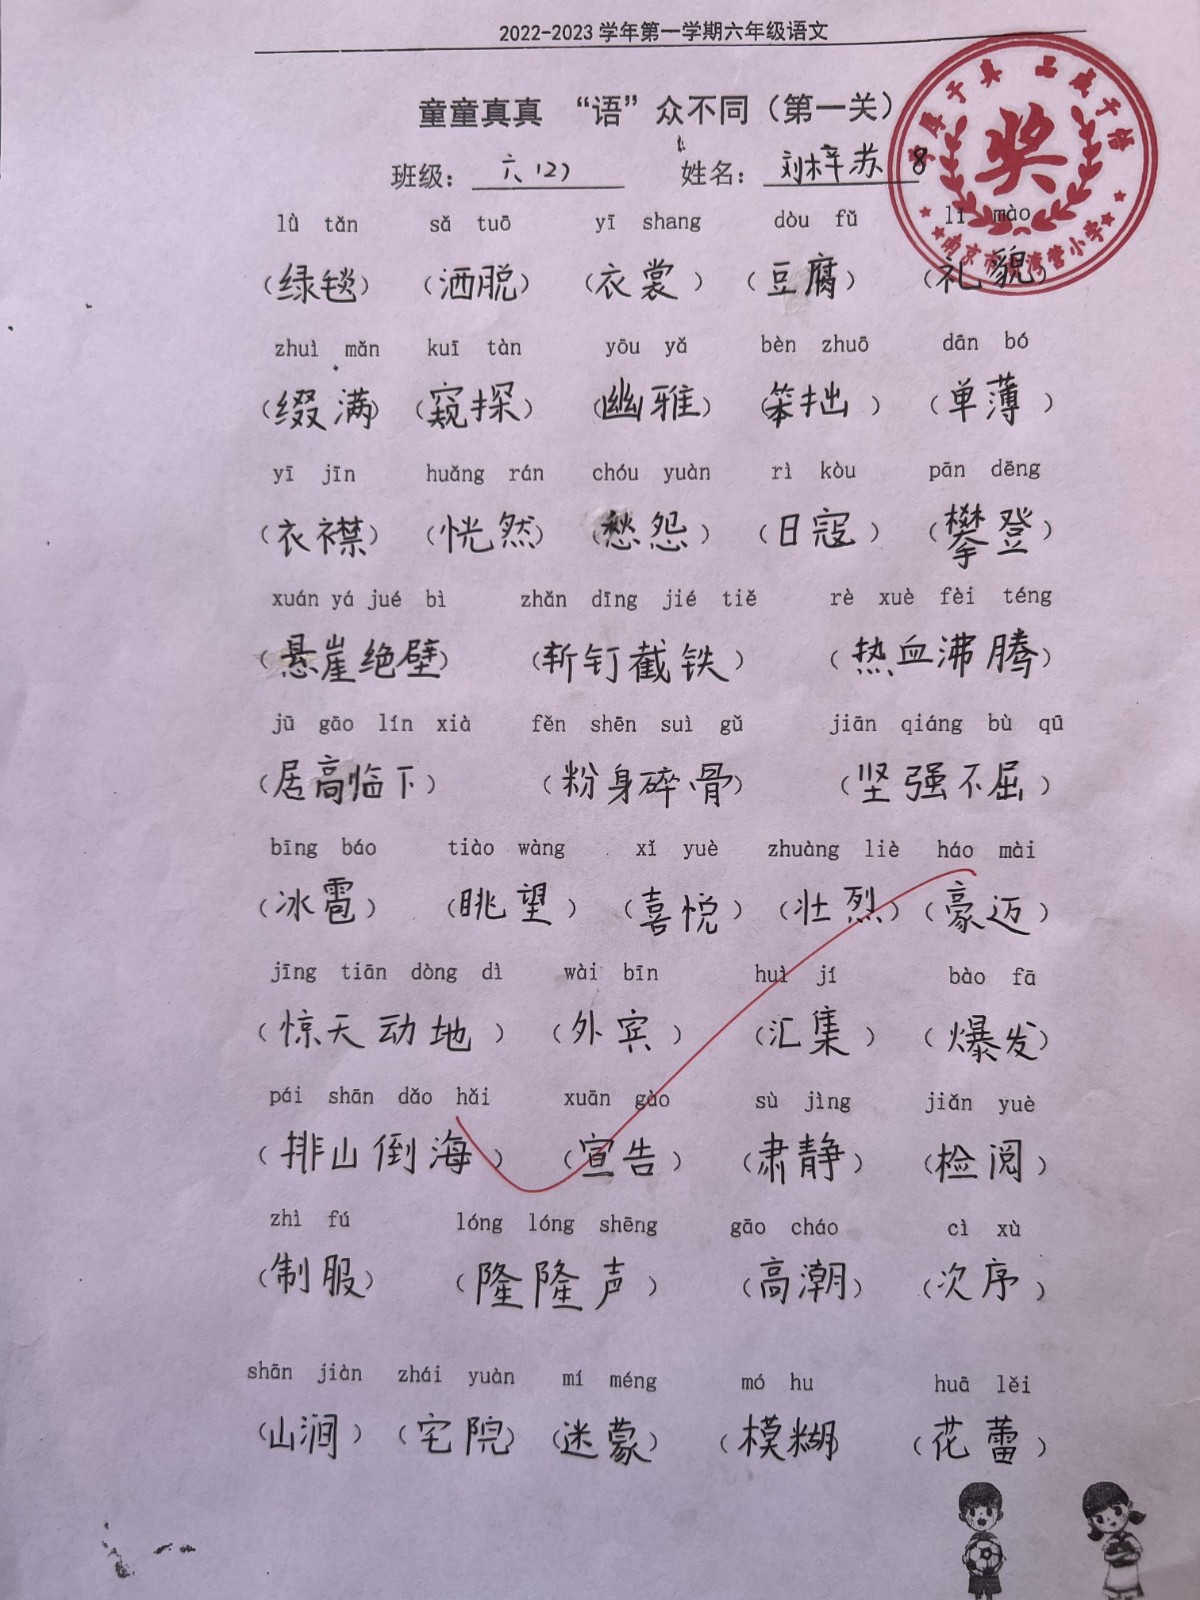 2022-2023学年第一学期六年级语文
童童真真 “语”众不同（第一关）
班级：六（2） 姓名：刘梓苏 8
奖
lǜ tǎn sǎ tuō yī shang dòu fǔ lǐ mào
（绿毯）（洒脱）（衣裳）（豆腐）（礼貌）
zhuì mǎn kuī tàn yōu yǎ bèn zhuō dān bó
（缀满）（窥探）（幽雅）（笨拙）（单薄）
yī jīn huǎng rán chóu yuàn rì kòu pān dēng
（衣襟）（恍然）（愁怨）（日寇）（攀登）
xuán yá jué bì zhǎn dīng jié tiě rè xuè fèi téng
（悬崖绝壁）（斩钉截铁）（热血沸腾）
jū gāo lín xià fěn shēn suì gǔ jiān qiáng bù qū
（居高临下）（粉身碎骨）（坚强不屈）
bīng báo tiào wàng xǐ yuè zhuàng liè háo mài
（冰雹）（眺望）（喜悦）（壮烈）（豪迈）
jīng tiān dòng dì wài bīn huì jí bào fā
（惊天动地）（外宾）（汇集）（爆发）
pái shān dǎo hǎi xuān gào sù jìng jiǎn yuè
（排山倒海）（宣告）（肃静）（检阅）
zhì fú lóng lóng shēng gāo cháo cì xù
（制服）（隆隆声）（高潮）（次序）
shān jiàn zhái yuàn mí méng mó hu huā lěi
（山涧）（宅院）（迷蒙）（模糊）（花蕾）